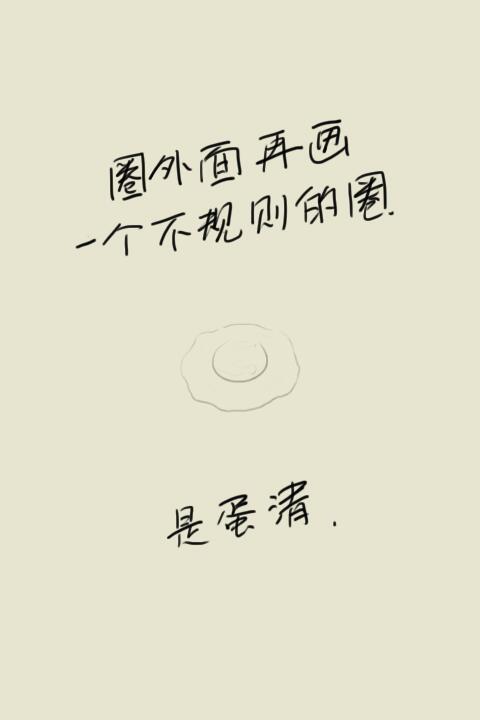 圈外面再画
一个不规则的圈.
是蛋清.